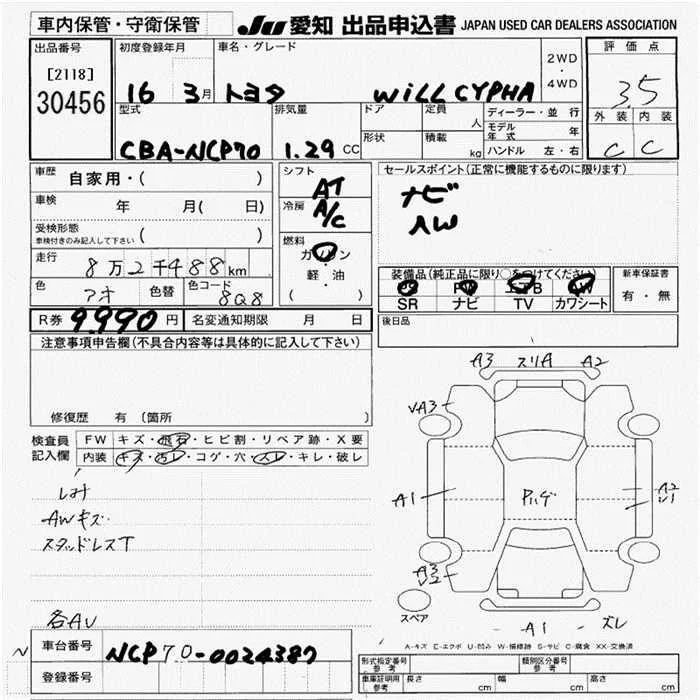 車内保管・守衛保管
JU 愛知 出品申込書 JAPAN USED CAR DEALERS ASSOCIATION
出品番号
[2118]
30456
初度登録年月
16 3月
車名・グレード
トヨタ WiLL CYPHA
2WD
・
4WD
評価点
3.5
外装 内装
C C
型式
CBA-NCP70
排気量
1.29 CC
ドア
定員
人
形状
積載
kg
ディーラー・並行
モデル年式 年
ハンドル 左・右
車歴
自家用・( )
車検
年 月( 日)
受検形態
車検付きのみ記入して下さい ( )
走行
8万2千488km
色
アオ
色替
色コード
8Q8
シフト
AT
冷房
A/C
燃料
ガソリン
・
軽・油
( )
セールスポイント(正常に機能するものに限ります)
ナビ
AW
装備品(純正品に限り○をつけてください)
PS PW エアB AW
SR ナビ TV カワシート
新車保証書
有・無
R券 9,990 円
名変通知期限 月 日
後日品
注意事項申告欄(不具合内容等は具体的に記入して下さい)
修復歴 有(箇所 )
検査員
記入欄
FW キズ・飛石・ヒビ割・リペア跡・X要
内装 キズ・汚レ・コゲ・穴・スレ・キレ・破レ
AWキズ
スタッドレスT
各AU
A3 スリA A2
VA3
A1
A2
A3
A1 ズレ
スペア
A-キズ E-エクボ U-凹み W-補修跡 S-サビ C-腐食 XX-交換済
車台番号
NCP70-0024387
登録番号
形式指定番号
参考
類別区分番号
参考
車庫証明用
参考
長さ cm
幅 cm
高さ cm